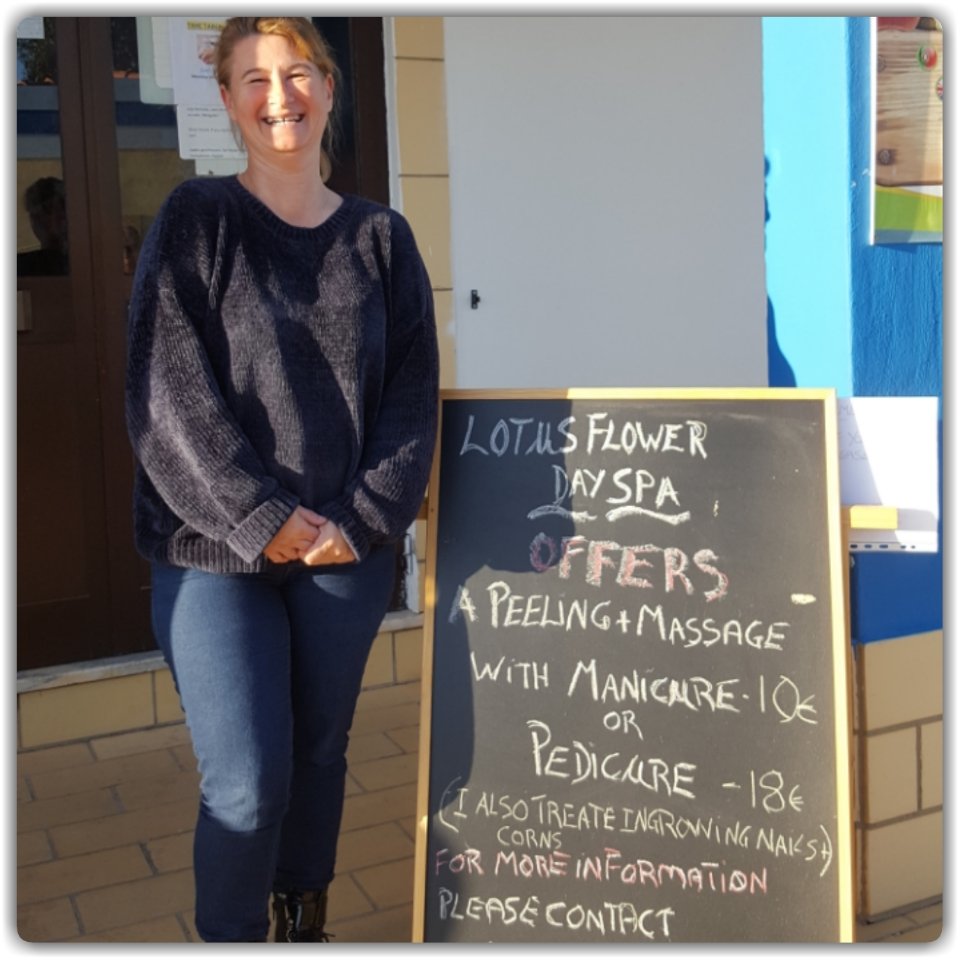 TIME TABLE
LOTUS FLOWER
DAY SPA
OFFERS
A PEELING + MASSAGE
WITH MANICURE - 10€
OR
PEDICURE - 18€
(I ALSO TREATE INGROWING NAILS +)
CORNS
FOR MORE INFORMATION
PLEASE CONTACT